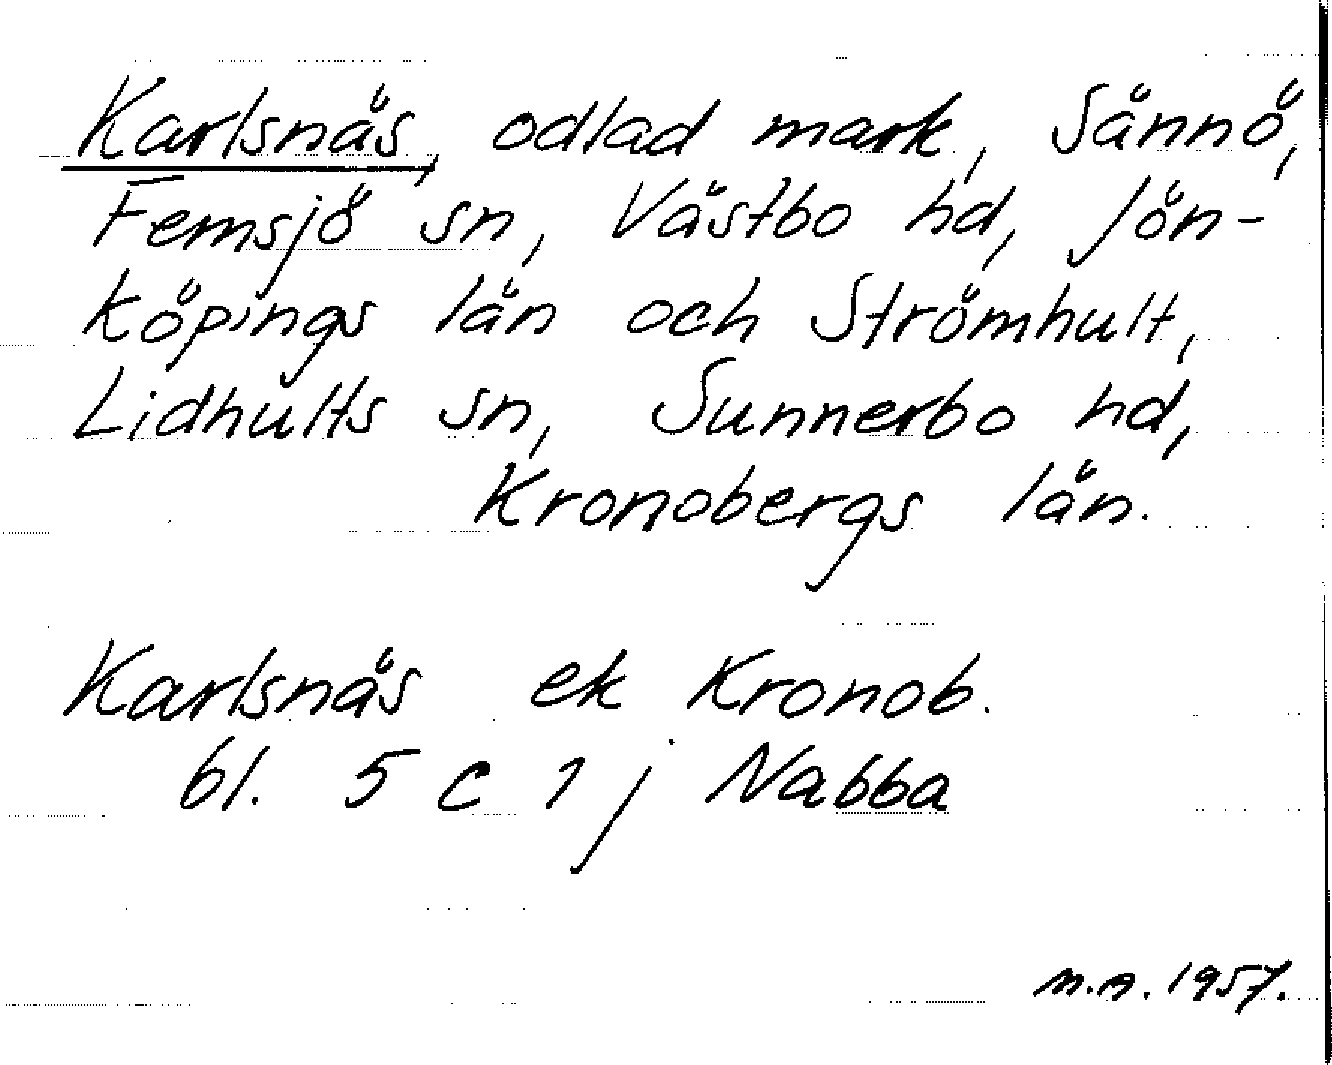 Karlsnäs, odlad mark, Sännö,
Femsjö sn, Västbo hd, Jön-
köpings län och Strömhult,
Lidhults sn, Sunnerbo hd,
Kronobergs län.
Karlsnäs ek Kronob.
bl. 5 c 1 j Nabba
m.A. 1957.